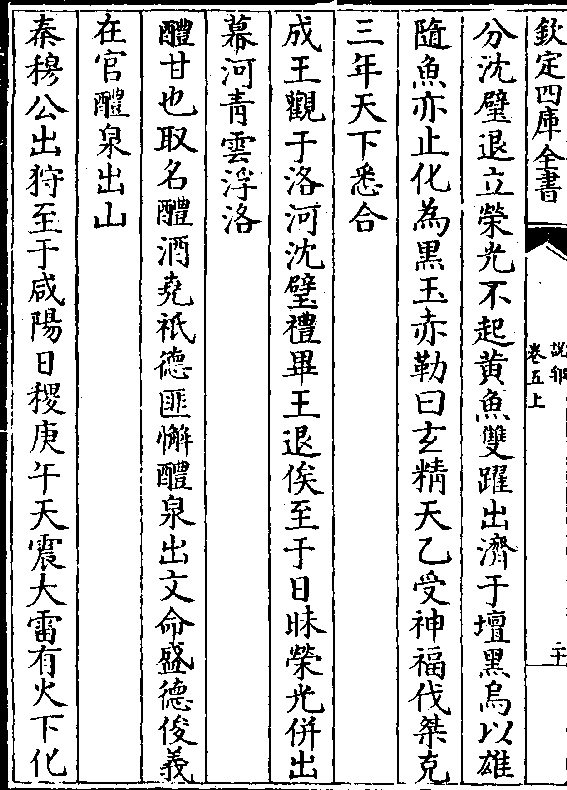 欽定四庫全書
說郛
卷五上
二十
分沈璧退立榮光不起黃魚雙躍出濟于壇黑烏以雄
隨魚亦止化為黑玉赤勒曰玄精天乙受神福伐桀克
三年天下悉合
成王觀于洛河沈璧禮畢王退俟至于日昧榮光併出
幕河青雲浮洛
醴甘也取名醴酒堯祇德匪懈醴泉出文命盛德俊義
在官醴泉出山
秦穆公出狩至于咸陽日稷庚午天震大雷有火下化